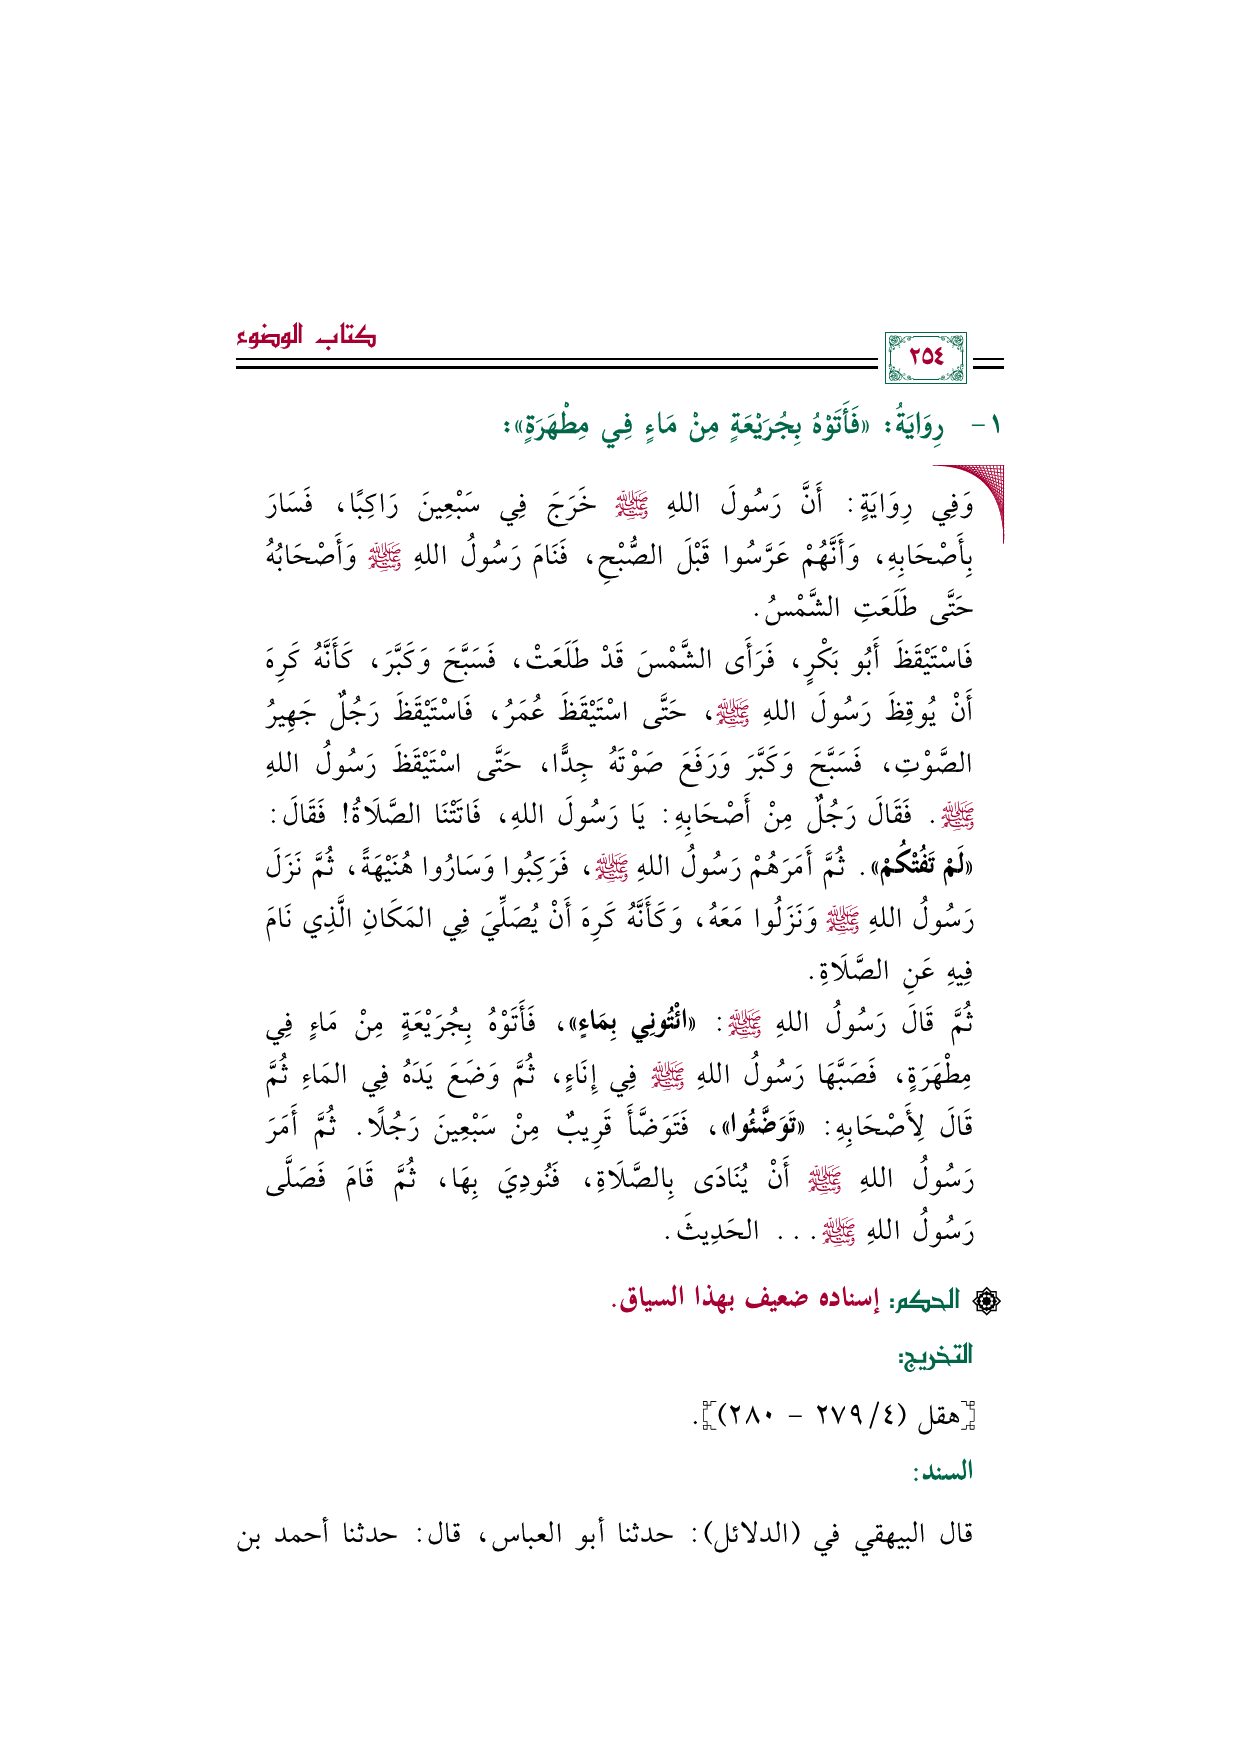 كتاب الوضوء
٢٥٤
١- رِوَايَةُ: «فَأَتَوْهُ بِجُرَيْعَةٍ مِنْ مَاءٍ فِي مِطْهَرَةٍ»:
وَفِي رِوَايَةٍ: أَنَّ رَسُولَ اللهِ ﷺ خَرَجَ فِي سَبْعِينَ رَاكِبًا، فَسَارَ
بِأَصْحَابِهِ، وَأَنَّهُمْ عَرَّسُوا قَبْلَ الصُّبْحِ، فَنَامَ رَسُولُ اللهِ ﷺ وَأَصْحَابُهُ
حَتَّى طَلَعَتِ الشَّمْسُ.
فَاسْتَيْقَظَ أَبُو بَكْرٍ، فَرَأَى الشَّمْسَ قَدْ طَلَعَتْ، فَسَبَّحَ وَكَبَّرَ، كَأَنَّهُ كَرِهَ
أَنْ يُوقِظَ رَسُولَ اللهِ ﷺ، حَتَّى اسْتَيْقَظَ عُمَرُ، فَاسْتَيْقَظَ رَجُلٌ جَهِيرُ
الصَّوْتِ، فَسَبَّحَ وَكَبَّرَ وَرَفَعَ صَوْتَهُ جِدًّا، حَتَّى اسْتَيْقَظَ رَسُولُ اللهِ
ﷺ. فَقَالَ رَجُلٌ مِنْ أَصْحَابِهِ: يَا رَسُولَ اللهِ، فَاتَتْنَا الصَّلَاةُ! فَقَالَ:
«لَمْ تَفُتْكُمْ». ثُمَّ أَمَرَهُمْ رَسُولُ اللهِ ﷺ، فَرَكِبُوا وَسَارُوا هُنَيْهَةً، ثُمَّ نَزَلَ
رَسُولُ اللهِ ﷺ وَنَزَلُوا مَعَهُ، وَكَأَنَّهُ كَرِهَ أَنْ يُصَلِّيَ فِي المَكَانِ الَّذِي نَامَ
فِيهِ عَنِ الصَّلَاةِ.
ثُمَّ قَالَ رَسُولُ اللهِ ﷺ: «ائْتُونِي بِمَاءٍ»، فَأَتَوْهُ بِجُرَيْعَةٍ مِنْ مَاءٍ فِي
مِطْهَرَةٍ، فَصَبَّهَا رَسُولُ اللهِ ﷺ فِي إِنَاءٍ، ثُمَّ وَضَعَ يَدَهُ فِي المَاءِ ثُمَّ
قَالَ لِأَصْحَابِهِ: «تَوَضَّئُوا»، فَتَوَضَّأَ قَرِيبٌ مِنْ سَبْعِينَ رَجُلًا. ثُمَّ أَمَرَ
رَسُولُ اللهِ ﷺ أَنْ يُنَادَى بِالصَّلَاةِ، فَنُودِيَ بِهَا، ثُمَّ قَامَ فَصَلَّى
رَسُولُ اللهِ ﷺ... الحَدِيثَ.
الحكم: إسناده ضعيف بهذا السياق.
التخريج:
[هقل (٤/ ٢٧٩ - ٢٨٠)].
السند:
قال البيهقي في (الدلائل): حدثنا أبو العباس، قال: حدثنا أحمد بن